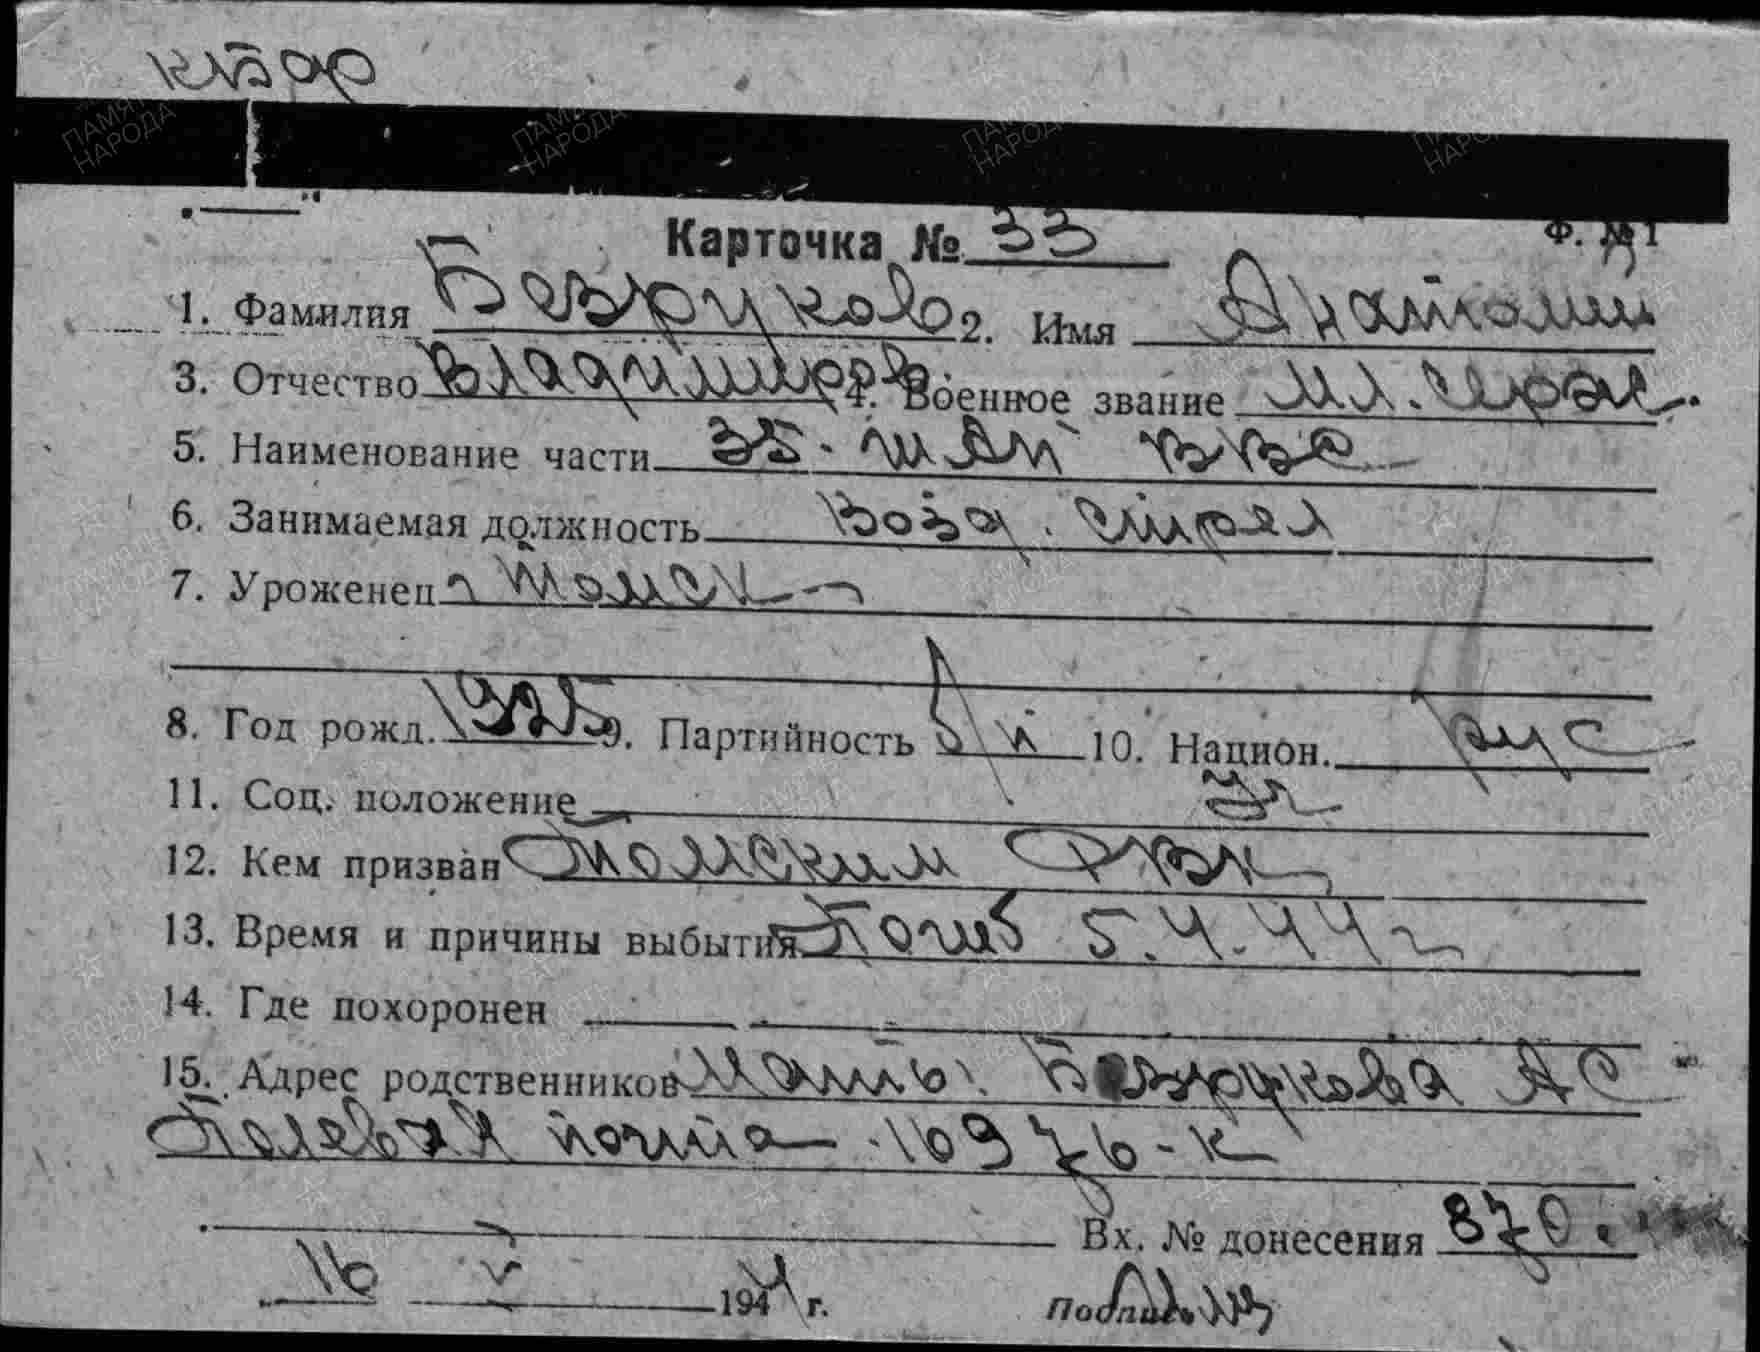 Карточка № 33
Ф. № 1
1. Фамилия Безруков 2. Имя Анатолий
3. Отчество Владимиров 4. Военное звание мл. серж.
5. Наименование части 35 шап ввс
6. Занимаемая должность Возд. стрел
7. Уроженец г Томск
8. Год рожд. 1925 9. Партийность б/п 10. Национ. рус
11. Соц. положение
12. Кем призван Томским РВК
13. Время и причины выбытия Погиб 5.4.44 г
14. Где похоронен
15. Адрес родственников Мать: Безрукова А С
Полевая почта 10976-к
Вх. № донесения 870.
16 V 1944 г. Подпись
ПАМЯТЬ НАРОДА